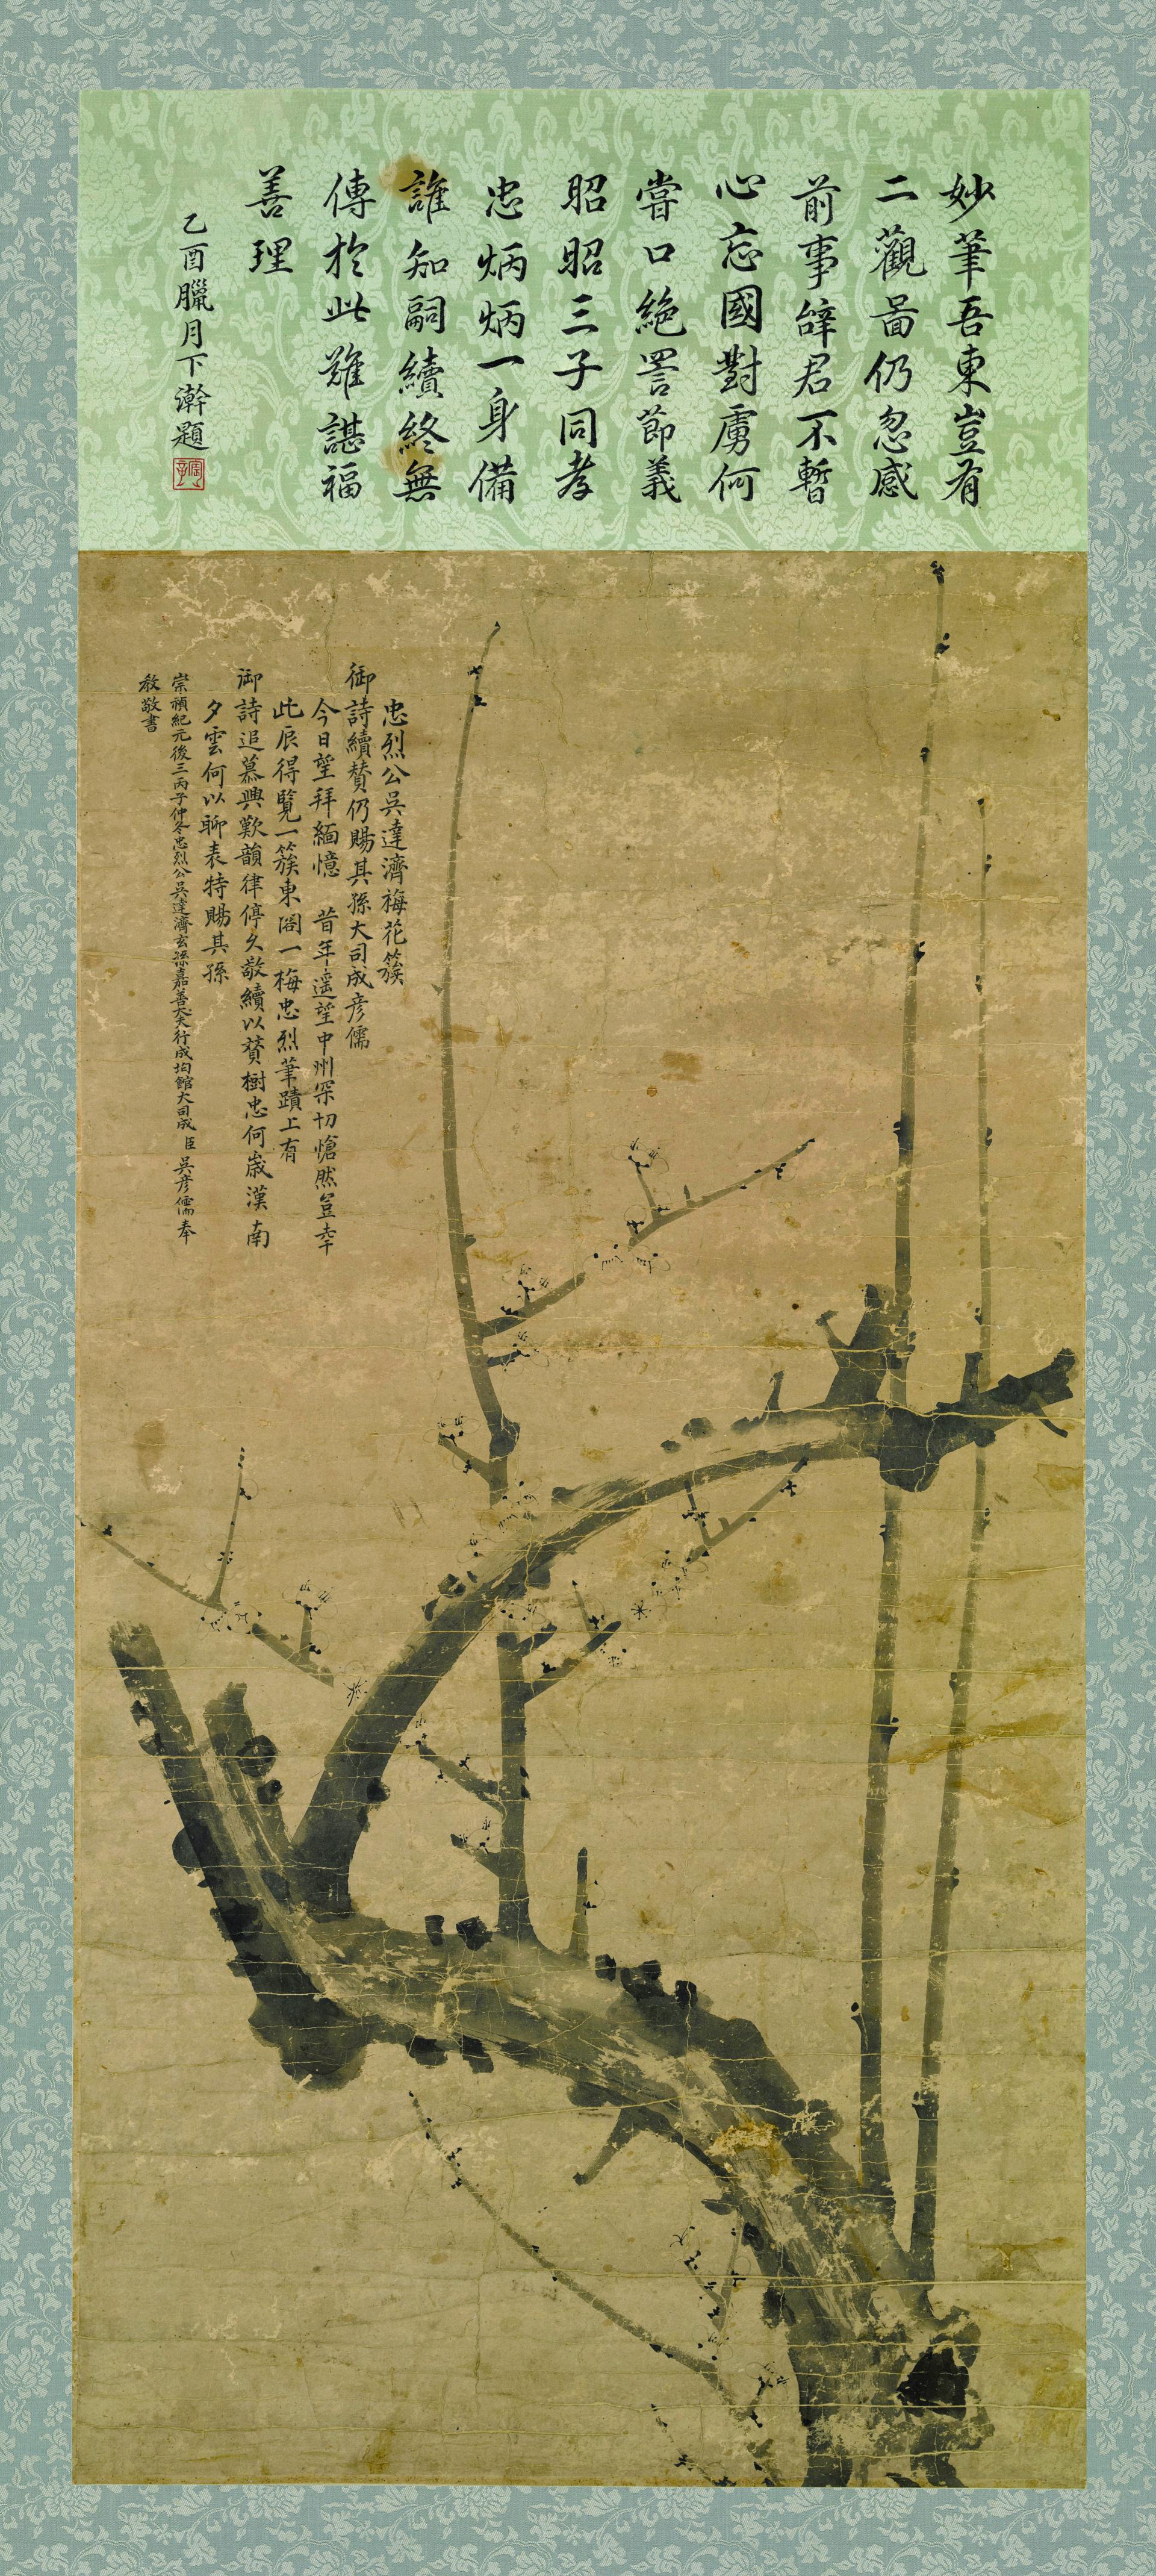 妙筆吾東豈有
二觀啚仍忽感
前事辝君不暫
心忘國對虜何
嘗口絶詈節義
昭昭三子同孝
忠炳炳一身備
誰知嗣續終無
傳於此難諶福
善理
乙酉臘月下澣題
忠烈公吳達濟梅花簇
御詩續賛仍賜其孫大司成彦儒
今日望拜緬憶 昔年遥望中州深切愴然豈幸
此辰得覧一簇東閣一梅忠烈筆蹟上有
御詩追慕興歎韻律停久敬續以賛樹忠何歳漢南
夕雲何以聊表特賜其孫
崇禎紀元後三丙子仲冬忠烈公吳達濟玄孫嘉善大夫行成均館大司成 臣 吳彦儒奉
敎敬書